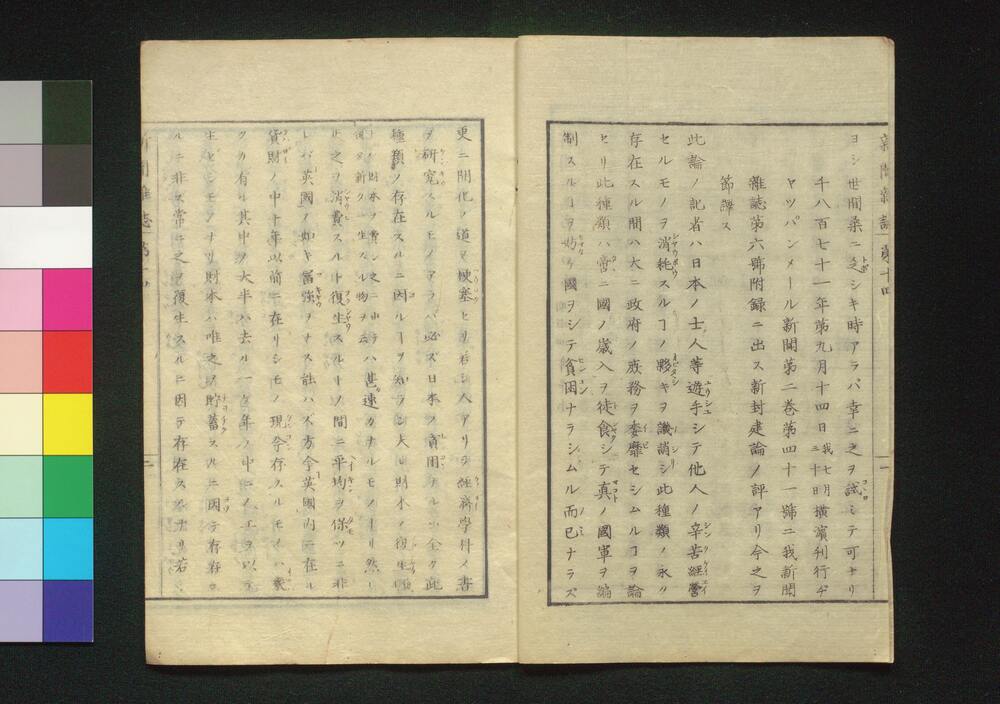 新聞雜誌 第十四
ヨシ世間柴ニ乏シキ時アラバ幸ニ之ヲ試ミテ可ナリ
千八百七十一年第九月十四日我七月三十日橫濱刊行ヂ
ヤツパンメール新聞第二卷第四十一號ニ我新聞
雜誌第六號附録ニ出ス新封建論ノ評アリ今之ヲ
節譯ス
此論ノ記者ハ日本ノ士人等遊手シテ他人ノ辛苦經營
セルモノヲ消耗スルヿノ夥キヲ譏誚シ此種類ノ永ク
存在スル間ハ大ニ政府ノ威務ヲ委靡セシムルヿヲ論
セリ此種類ハ啻ニ國ノ歳入ヲ徒食シテ真ノ國軍ヲ編
制スルヿヲ妨ク國ヲシテ貧困ナラシムル而已ナラズ
更ニ開化ノ道ヲ梗塞セリ若シ人アリテ經濟學科ノ書
ヲ研究スルモノアラバ必ズ日本ヲ貧困 全ク此
種類ノ存在スルニ因ルヿヲ知ラン夫 財本ノ復生
財本ヲ費 之ニ 甚速カナルモノ アリ然
新ク 生スル物ヲ
止之ヲ消費スルト復生スルトノ間ニ平均ヲ保ツニ非
レバ英國ノ如キ富強ヲナス能ハズ方今英國内ニ在ル
貨財ノ中十年以前ニ在リシモノ現今存スルモノハ
クカ有ル其中ヲ大半ハ去ル一ヶ年ノ中 人工ヲ以テ
生ゼシモノナリ財本ハ唯之ヲ貯蓄スルニ因テ存 ス
ルニ非ズ常ニ之ヲ復生スルニ因テ存在スルナリ若